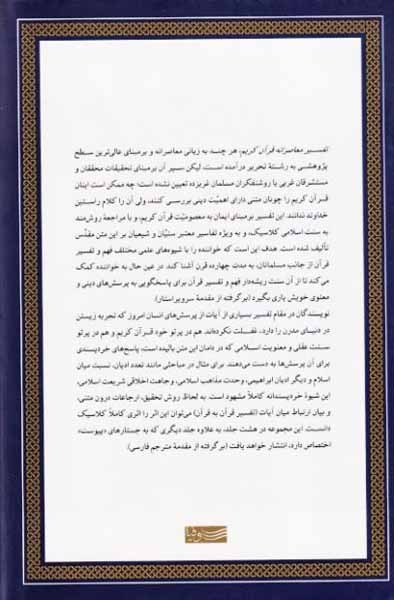 تفسیر معاصرانه قرآن کریم، هر چند به زبانی معاصرانه و برمبنای عالی‌ترین سطح
پژوهشی به رشتهٔ تحریر درآمده است، لیکن مسیر آن برمبنای تحقیقات محققان و
مستشرقان غربی یا روشنفکران مسلمان غربزده تعیین نشده است؛ چه ممکن است اینان
قرآن کریم را چونان متنی دارای اهمیّت دینی بررسی کنند، ولی آن را کلام راستین
خداوند ندانند. این تفسیر برمبنای ایمان به معصومیّت قرآن کریم، و با مراجعهٔ روش‌مند
به سنت اسلامی کلاسیک، و به ویژه تفاسیر معتبر سنیّان و شیعیان بر این متن مقدّس
تألیف شده است. هدف این است که خواننده را با شیوه‌های علمی مختلف فهم و تفسیر
قرآن از جانب مسلمانان، به مدت چهارده قرن آشنا کند. در عین حال به خواننده کمک
می‌کند تا از آن سنت ریشه‌دار فهم و تفسیر قرآن برای پاسخگویی به پرسش‌های دینی و
معنوی خویش یاری بگیرد (برگرفته از مقدمهٔ سرویراستار).
نویسندگان در مقام تفسیر بسیاری از آیات از پرسش‌های انسان امروز که تجربه زیستن
در دنیای مدرن را دارد، غفلت نکرده‌اند. هم در پرتو خود قرآن کریم و هم در پرتو
سنت عقلی و معنویت اسلامی که در دامان این متن بالیده است، پاسخ‌های خردپسندی
برای آن پرسش‌ها به دست می‌دهند. برای مثال در مباحثی مانند تعدد ادیان، نسبت میان
اسلام و دیگر ادیان ابراهیمی، وحدت مذاهب اسلامی، و جاهت اخلاقی شریعت اسلامی،
این شیوهٔ خردپسندانه کاملاً مشهود است. به لحاظ روش تحقیق، ارجاعات درون متنی،
و بیان ارتباط میان آیات (تفسیر قرآن به قرآن) می‌توان این اثر را اثری کاملاً کلاسیک
دانست. این مجموعه در هشت جلد، به علاوه جلد دیگری که به جستارهای «پیوست»
اختصاص دارد، انتشار خواهد یافت (برگرفته از مقدمهٔ مترجم فارسی).